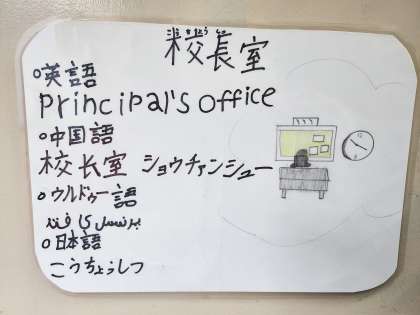 校長室
○英語
principal's office
○中国語
校长室 ショウチァンシュー
○ウルドゥー語
پرنسپل کا
○日本語
こうちょうしつ